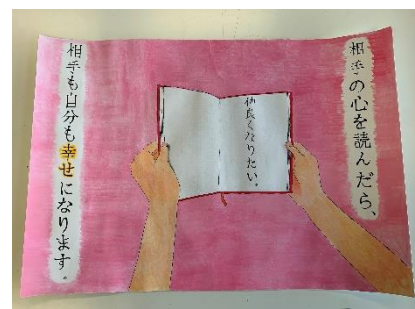 相手の心を読んだら、
仲良くなりたい。
相手も自分も幸せになります。